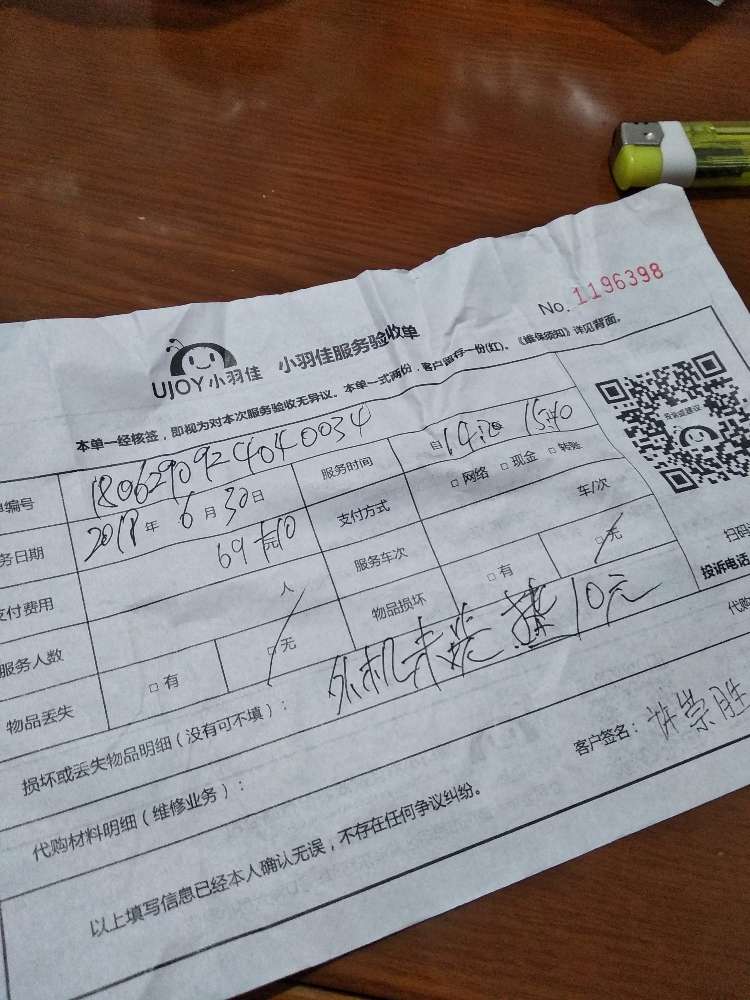 No. 1196398
UJOY小羽佳 小羽佳服务验收单
本单一经核签，即视为对本次服务验收无异议。本单一式两份，客户留存一份(红)。《维保须知》详见背面。
单编号 180629092404034 服务时间 自 14:20 15:40
务日期 2018 年 6 月 30 日 支付方式 □ 网络 □ 现金 □ 转账
支付费用 69 元 服务车次 车/次
服务人数 人 物品损坏 □ 有 □ 无
物品丢失 □ 有 □ 无
损坏或丢失物品明细（没有可不填）： 外机未装 10元
代购材料明细（维修业务）：
客户签名： 许崇胜
以上填写信息已经本人确认无误，不存在任何争议纠纷。
扫码
投诉电话
代购